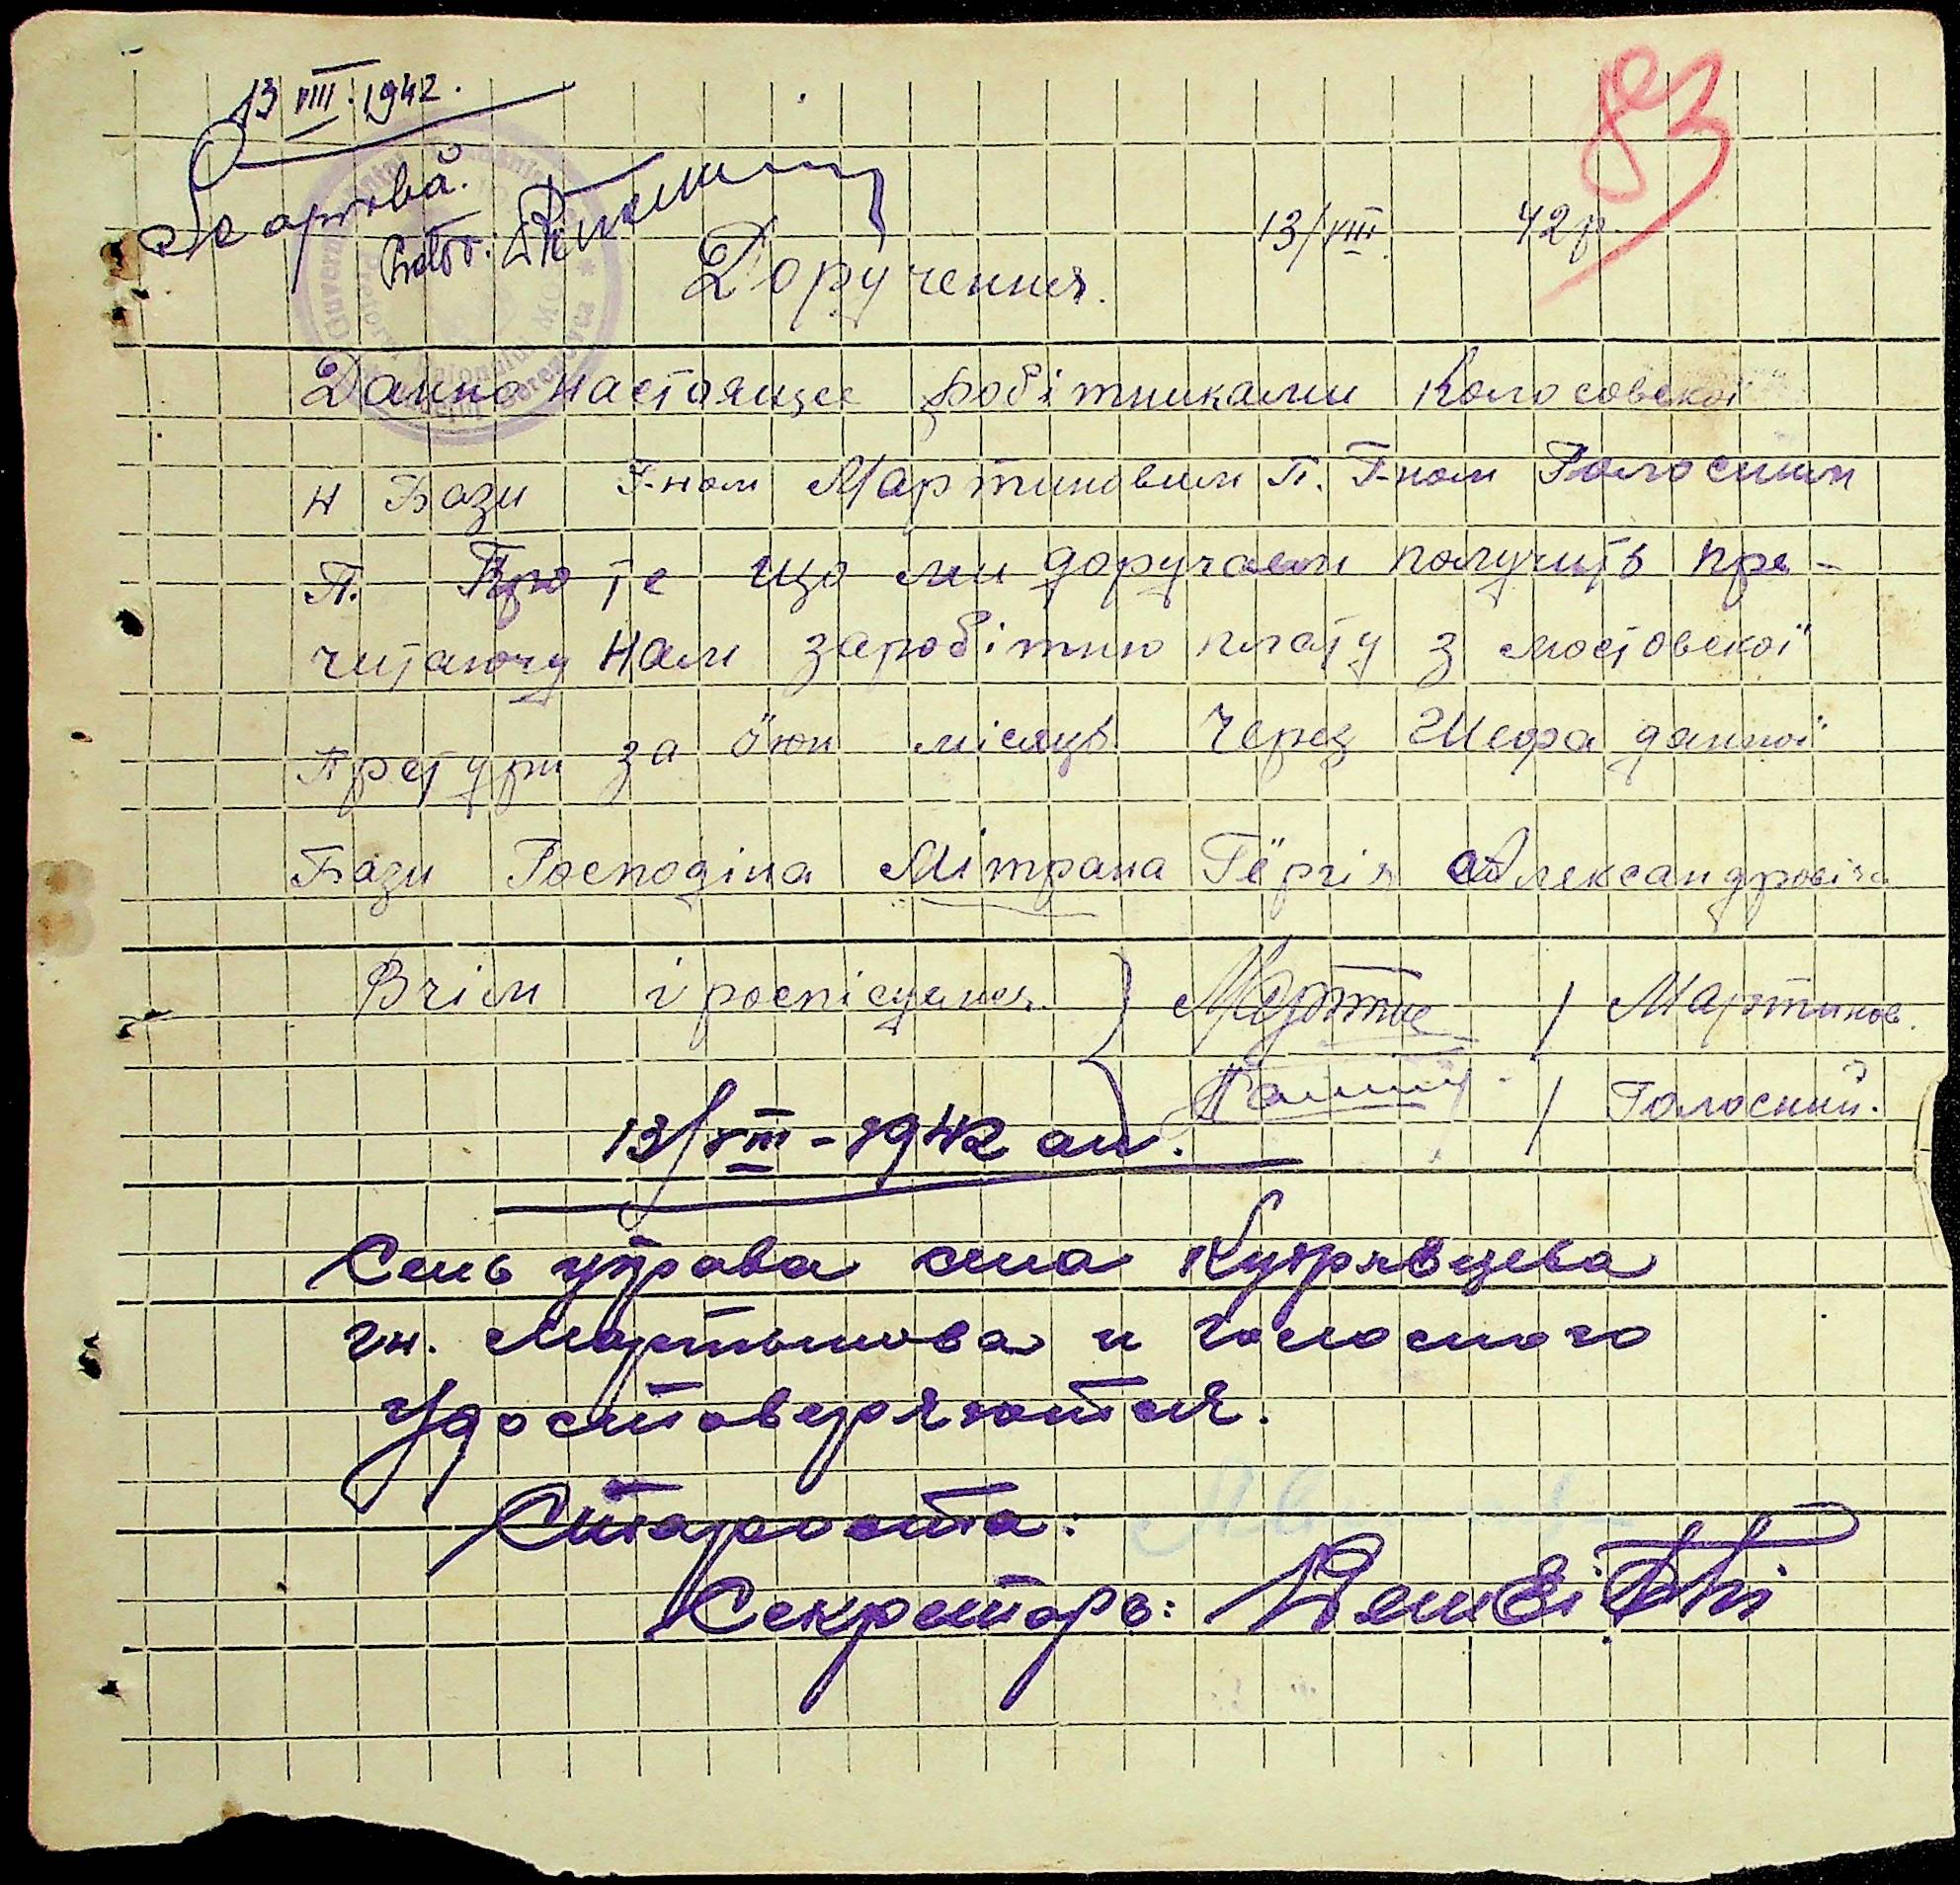 13 VIII. 1942.
Se aprobă.
83
13/VIII 42 р.
Доручення.
Данно настоящее робітниками Колосовскої
н Бази Г-ном Мартиновим П. Г-ном Голосним
П. Про те що ми доручаем получить пре-
читаючу нам заробітню плату з мостовскої
Претури за ӥюн місяць Через Шефа данної
Бази Господіна Мітрана Гёргія Александровіча
Вчім і роспісуемся
/ Мартинов.
/ Голосний.
13/VIII - 1942 an.
Сель управа села Кудрявцева
гн. Мартынова и Голосного
удостоверяются.
Староста:
Секретарь: